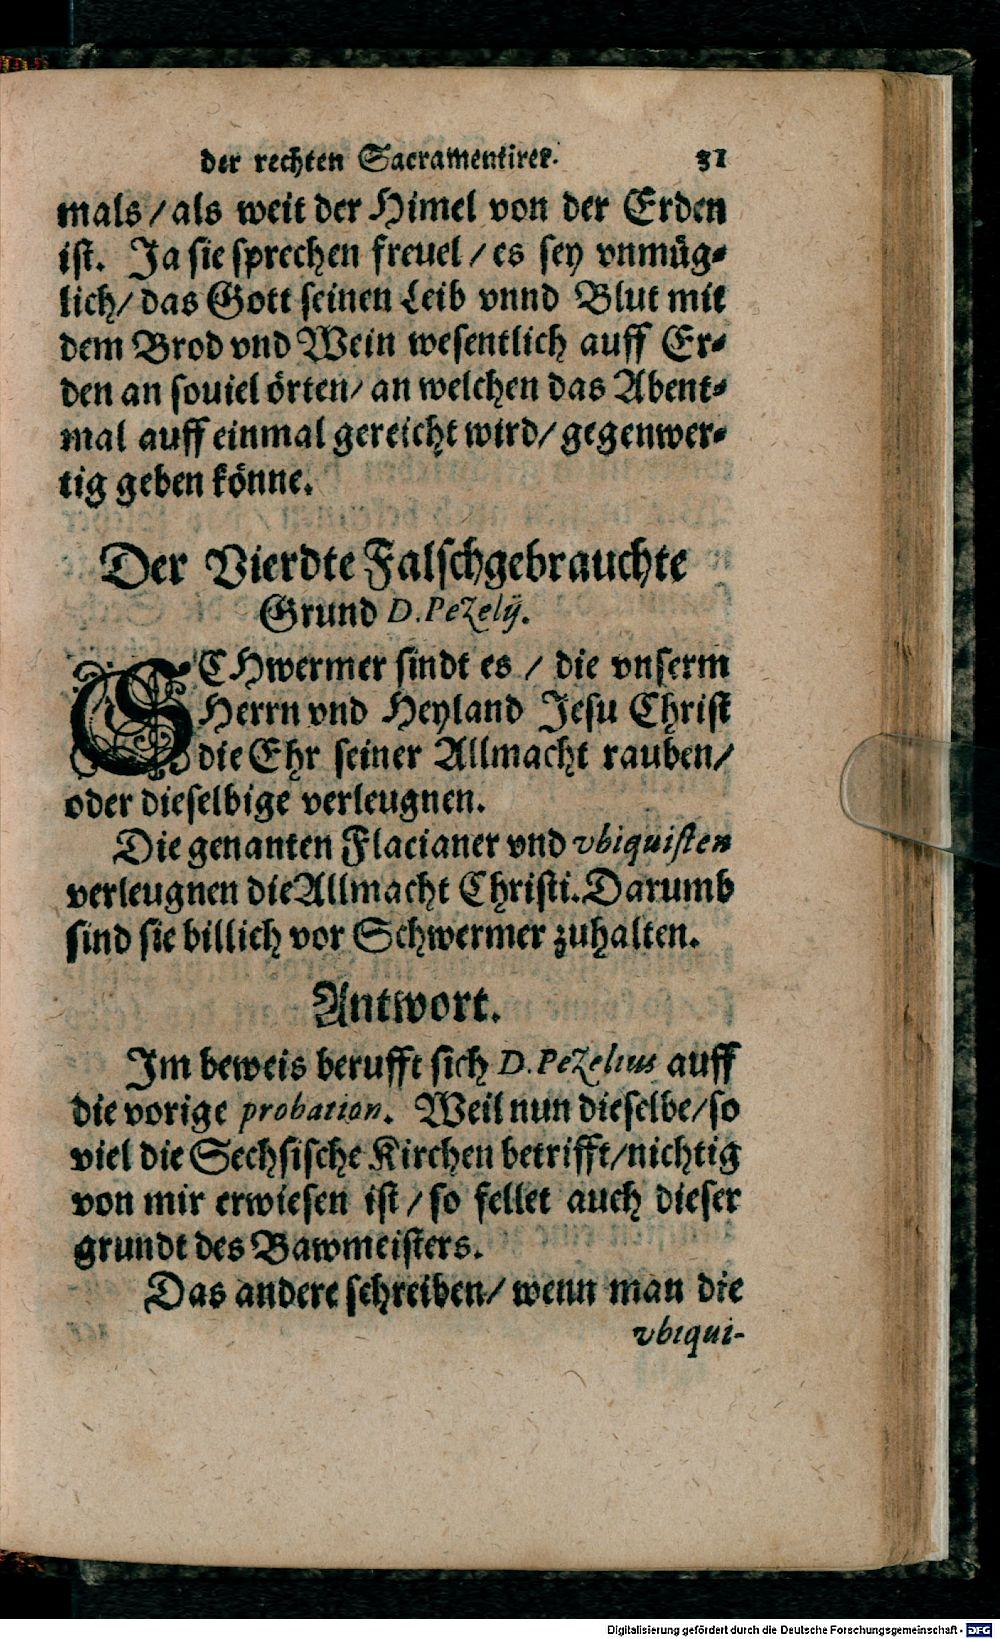 der rechten Sacramentirer. 31
mals/als weit der Himel von der Erden
ist. Ja sie sprechen freuel/es sey vnmüg-
lich/das Gott seinen Leib vnnd Blut mit
dem Brod vnd Wein wesentlich auff Er-
den an souiel örten/an welchen das Abent-
mal auff einmal gereicht wird/gegenwer-
tig geben könne.
Der Vierdte Falschgebrauchte
Grund D. Pezelij.
SCHwermer sindt es / die vnserm
Herrn vnd Heyland Jesu Christ
die Ehr seiner Allmacht rauben/
oder dieselbige verleugnen.
Die genanten Flacianer vnd vbiquisten
verleugnen die Allmacht Christi. Darumb
sind sie billich vor Schwermer zuhalten.
Antwort.
Im beweis berufft sich D. Pezelius auff
die vorige probation. Weil nun dieselbe/so
viel die Sechsische Kirchen betrifft/nichtig
von mir erwiesen ist/so fellet auch dieser
grundt des Bawmeisters.
Das andere schreiben/wenn man die
vbiqui-
Digitalisierung gefördert durch die Deutsche Forschungsgemeinschaft - DFG